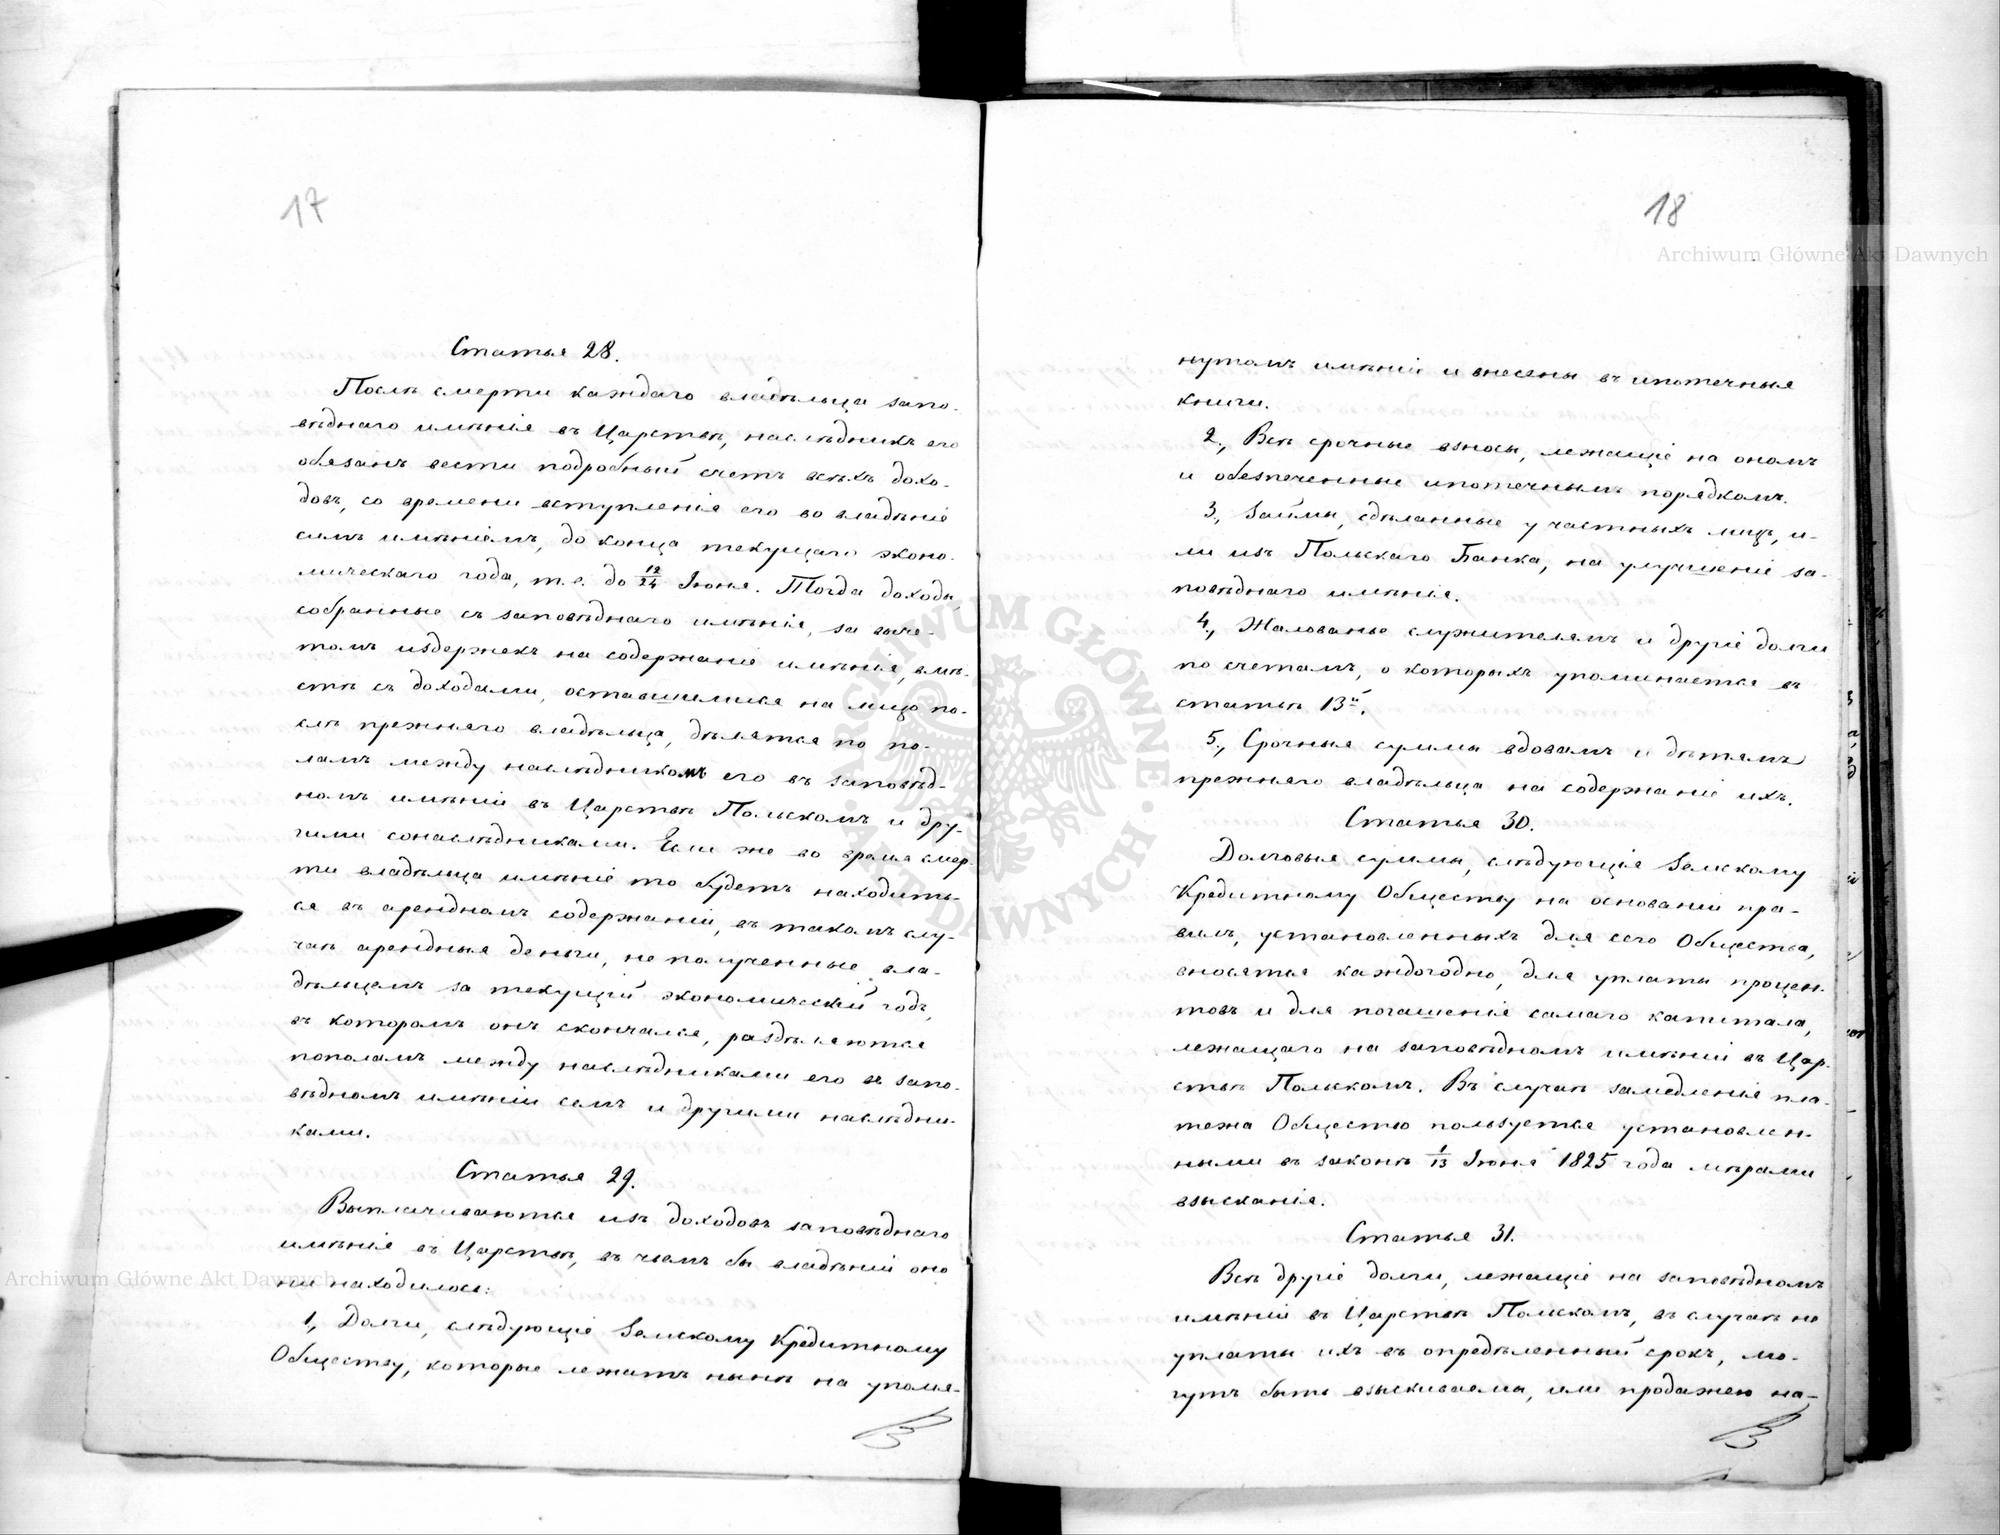 17
Статья 28.
Послѣ смерти каждаго владѣльца запо-
вѣднаго имѣнія въ Царствѣ, наслѣдникъ его
обязанъ вести подробный счетъ всѣхъ дохо-
довъ, со времени вступленія его во владѣніе
симъ имѣніемъ, до конца текущаго эконо-
мическаго года, т.е. до 12/24 Іюня. Тогда доходы,
собранные съ заповѣднаго имѣнія, за выче-
томъ издержекъ на содержаніе имѣнія, вмѣ-
стѣ съ доходами, оставшимися на лицо по-
слѣ прежняго владѣльца, дѣлятся по по-
ламъ между наслѣдникомъ его въ заповѣд-
номъ имѣніи въ Царствѣ Польскомъ и дру-
гими сонаслѣдниками. Если же во время смер-
ти владѣльца имѣніе то будетъ находить-
ся въ арендномъ содержаніи, въ такомъ слу-
чаѣ арендныя деньги, не полученные вла-
дѣльцемъ за текущій экономическій годъ,
въ которомъ онъ скончался, раздѣляются
пополамъ между наслѣдниками его въ запо-
вѣдномъ имѣніи семъ и другими наслѣдни-
ками.
Статья 29.
Выплачиваются изъ доходовъ заповѣднаго
имѣнія въ Царствѣ, въ чьемъ бы владѣніи оно
ни находилось:
1., Долги, слѣдующіе Земскому Кредитному
Обществу, которые лежатъ нынѣ на упомя-
18
нутомъ имѣніи и внесены въ ипотечныя
книги.
2., Всѣ срочные взносы, лежащіе на ономъ
и обезпеченные ипотечнымъ порядкомъ.
3., Займы, сдѣланные у частныхъ лицъ, и-
ли изъ Польскаго Банка, на улучшеніе за-
повѣднаго имѣнія.
4., Жалованье служителямъ и другіе долги
по счетамъ, о которыхъ упоминается въ
статьѣ 13й.
5., Срочныя суммы вдовамъ и дѣтямъ
прежняго владѣльца на содержаніе ихъ.
Статья 30.
Долговыя суммы, слѣдующія Земскому
Кредитному Обществу на основаніи пра-
вилъ, установленныхъ для сего Общества,
вносятся каждогодно, для уплаты процен-
товъ и для погашенія самаго капитала,
лежащаго на заповѣдномъ имѣніи въ Цар-
ствѣ Польскомъ. Въ случаѣ замедленія пла-
тежа Общество пользуется установлен-
ными въ законѣ 1/13 Іюня 1825 года мѣрами
взысканія.
Статья 31.
Всѣ другіе долги, лежащіе на заповѣдномъ
имѣніи въ Царствѣ Польскомъ, въ случаѣ не
уплаты ихъ въ опредѣленный срокъ, мо-
гутъ быть взыскиваемы, или продажею на-
Archiwum Główne Akt Dawnych
Archiwum Główne Akt Dawnych
ARCHIWUM GŁÓWNE · AKT DAWNYCH ·